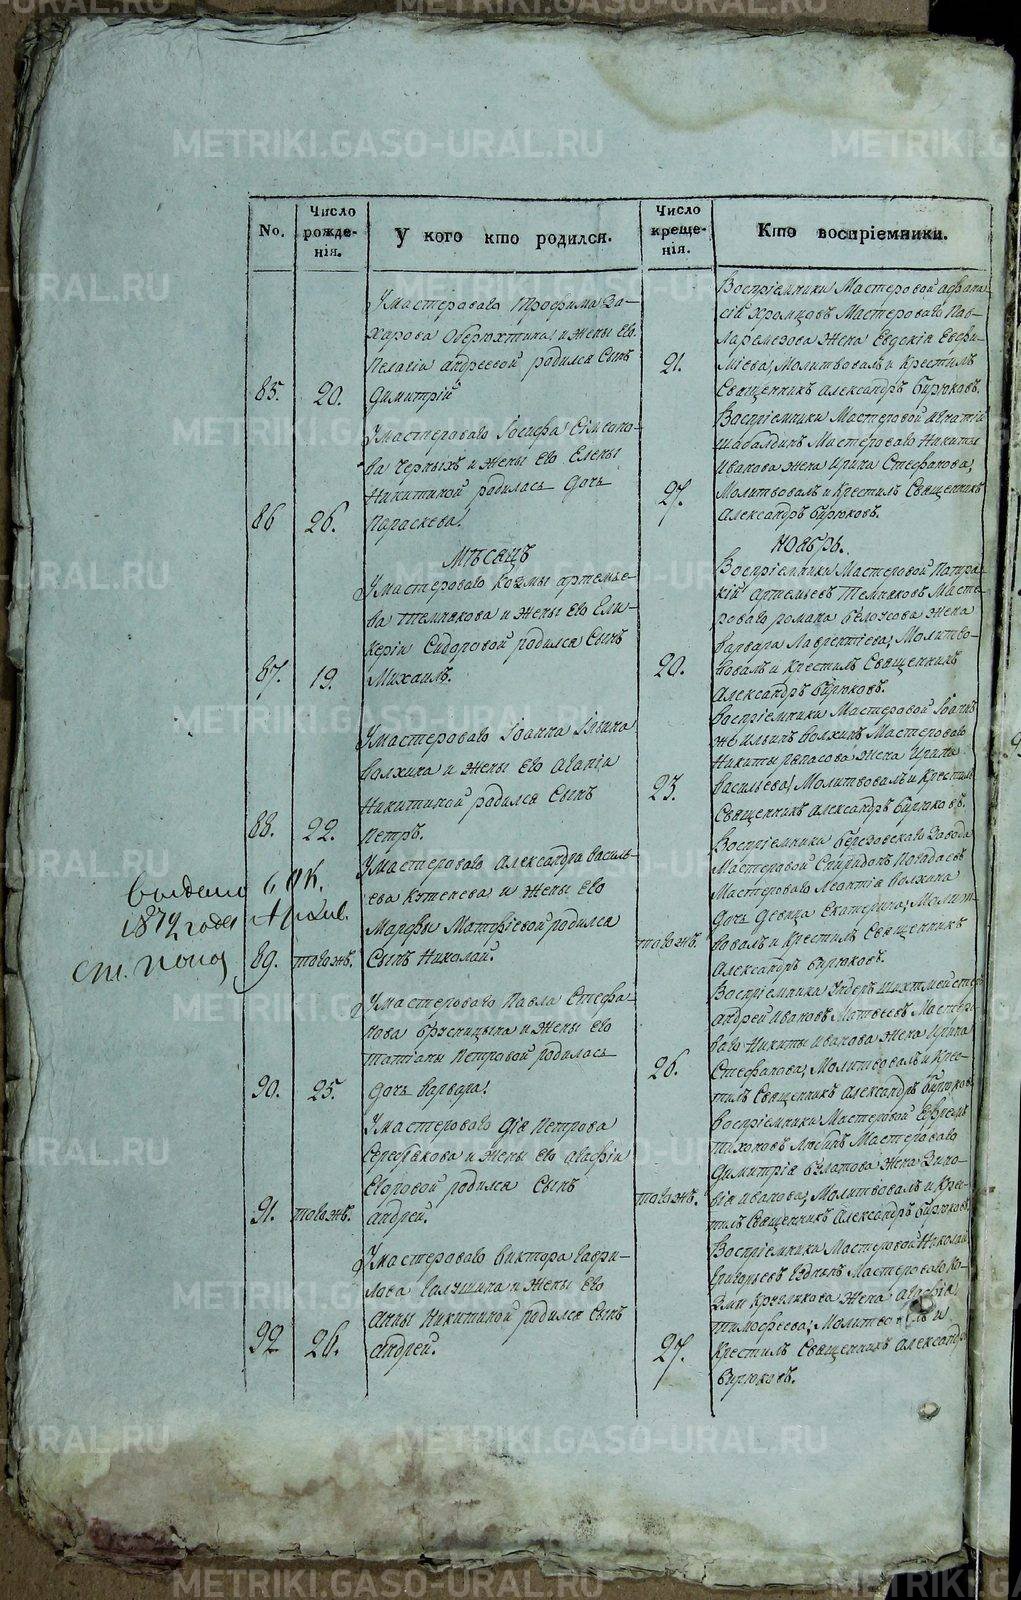 METRIKI.GASO-URAL.RU
No.
Число рожде-нія.
У кого кто родился.
Число креще-нія.
Кто воспріемники.
85.
20.
Умастероваго Трофима За-
харова Обрюхтина, и жены Его
Пелагіи андреевой родился Сынъ
Димитрій
21.
Воспріемники Мастеровой афана
сій Хромцовъ Мастероваго
жена Евдокія
Молитвовалъ и Крестилъ
Священникъ александръ Бирюковъ.
86
26.
Умастероваго Іосифа
ва Черныхъ и жены Его Елены
Никитиной родилась Дочь
Параскева.
27.
Воспріемники Мастеровой игнатій
шабалдинъ Мастероваго Никиты
иванова жена ирина Стефанова,
Молитвовалъ и Крестилъ Священникъ
александръ Бирюковъ.
Мѣсяцъ
Ноябрь.
87.
19.
Умастероваго Козмы артемье-
ва темнякова и жены Его
керіи Сидоровой родился Сынъ
Михаилъ.
20.
Воспріемники Мастеровой
артемьевъ темняковъ Масте-
роваго романа бѣлоусова жена
варвара Лаврентіева, Молитво-
валъ и Крестилъ Священникъ
александръ Бирюковъ.
88.
22.
Умастероваго Іоанна Ильина
волхина и жены Его агапіи
Никитиной родился Сынъ
Петръ.
23.
Воспріемники Мастеровой Іоаннъ
же ильинъ волхинъ Мастероваго
Никиты жена ирина
васильева, Молитвовалъ и Крестилъ
Священникъ александръ Бирюковъ.
выдано
1872 года Архив.
89.
тогожъ.
Умастероваго александра василь-
ева и жены Его
Марфы Матфіевой родился
Сынъ Николай.
тогожъ.
Воспріемники березовскаго завода
Мастеровой Спиридонъ
Мастероваго Леонтія волхина
дочь девица Екатерина, Молит-
валъ и Крестилъ Священникъ
александръ Бирюковъ.
90.
25.
Умастероваго Павла Стефа-
нова брусницына и жены Его
татіаны Петровой родилась
дочь варвара.
26.
Воспріемники Ундеръ шихтмейстеръ
андрей ивановъ Матвѣевъ Мастеро-
ваго Никиты иванова жена ирина
Стефанова, Молитвовалъ и Крес-
тилъ Священникъ александръ Бирюковъ
91.
тогожъ.
Умастероваго Петрова
Серебрякова и жены Его агафіи
Егоровой родился Сынъ
андрей.
тогожъ.
Воспріемники Мастеровой Ефремъ
тихоновъ Мастероваго
Димитрія булатова жена Зино-
вія иванова, Молитвовалъ и Крес-
тилъ Священникъ александръ Бирюковъ
92
26.
Умастероваго виктора гаври-
лова галушина и жены Его
анны Никитиной родился Сынъ
андрей.
27.
Воспріемники Мастеровой Николай
григорьевъ Мастероваго Ко-
змы Кругликова жена агафія
тимофеева, Молитвовалъ и
Крестилъ Священникъ александръ
Бирюковъ.